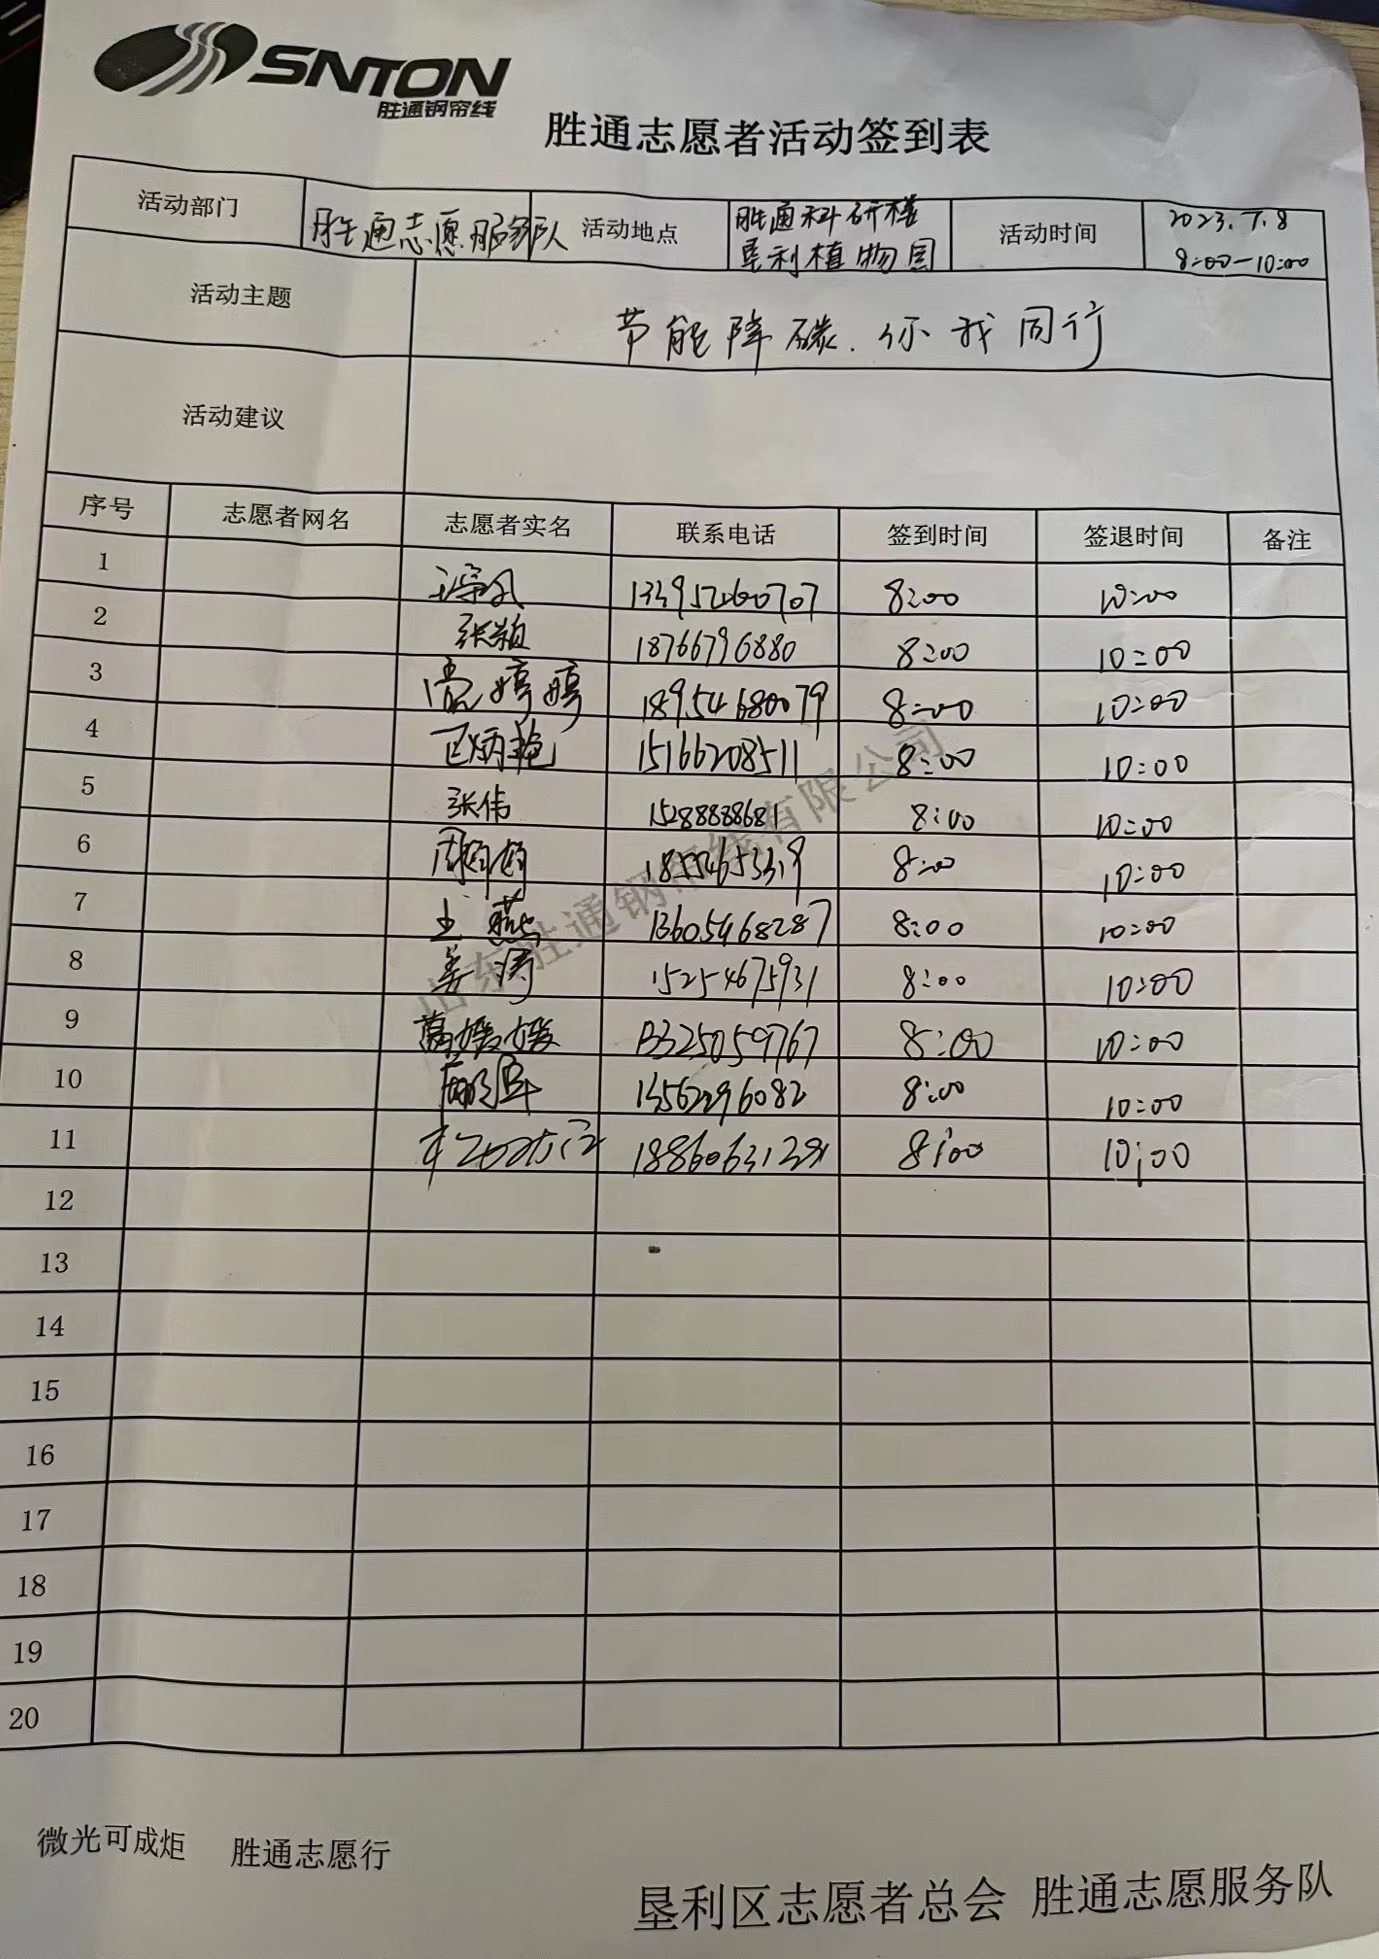 SNTON
胜通钢帘线
胜通志愿者活动签到表
活动部门 胜通志愿服务队 活动地点 胜通科研楼 垦利植物园 活动时间 2023.7.8 8:00-10:00
活动主题 节能降碳.你我同行
活动建议
序号 志愿者网名 志愿者实名 联系电话 签到时间 签退时间 备注
1 8:00 10:00
2 张颖 18766796880 8:00 10:00
3 婷婷 18954680079 8:00 10:00
4 15166208511 8:00 10:00
5 张伟 8:00 10:00
6 18554653319 8:00 10:00
7 王燕 13605468287 8:00 10:00
8 姜涛 15254675931 8:00 10:00
9 媛媛 13325059767 8:00 10:00
10 13562296082 8:00 10:00
11 8:00 10:00
12
13
14
15
16
17
18
19
20
山东胜通钢帘线有限公司
微光可成炬 胜通志愿行
垦利区志愿者总会 胜通志愿服务队